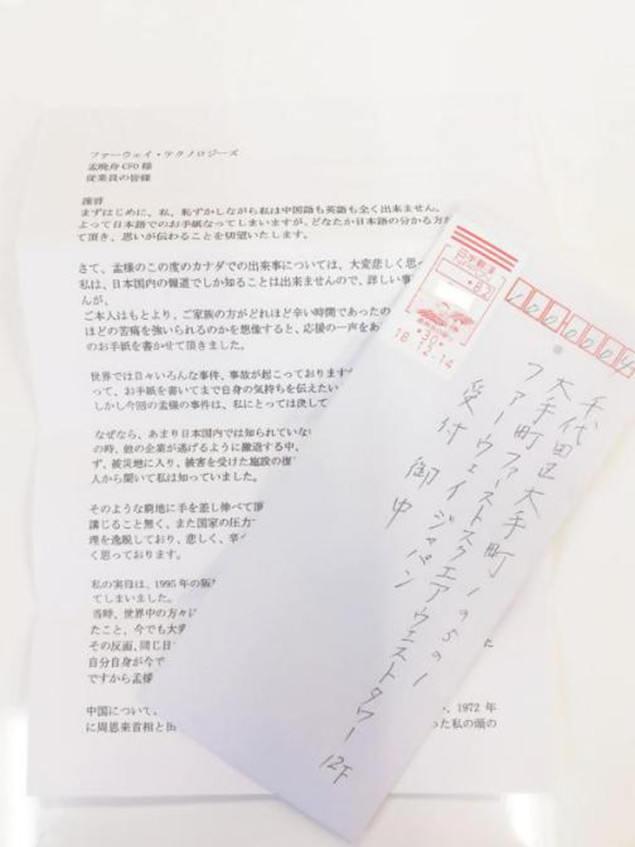 ファーウェイ・テクノロジーズ
孟晩舟CFO様
従業員の皆様
謹啓
まずはじめに、私、恥ずかしながら私は中国語も英語も全く出来ません。
よって日本語でのお手紙なってしまいますが、どなたか日本語の分かる方が
て頂き、思いが伝わることを切望いたします。
さて、孟様のこの度のカナダでの出来事については、大変悲しく思っ
私は、日本国内の報道でしか知ることは出来ませんので、詳しい事
んが、
ご本人はもとより、ご家族の方がどれほど辛い時間であったの
ほどの苦痛を強いられるのかを想像すると、応援の一声をあ
のお手紙を書かせて頂きました。
世界では日々いろんな事件、事故が起こっております
って、お手紙を書いてまで自身の気持ちを伝えたい
しかし今回の孟様の事件は、私にとっては決して
なぜなら、あまり日本国内では知られていない
の時、他の企業が逃げるように撤退する中、
ず、被災地に入り、被害を受けた施設の復
人から聞いて私は知っていました。
そのような窮地に手を差し伸べて頂
講じること無く、また国家の圧力
理を逸脱しており、悲しく、辛
く思っております。
私の実母は、1995年の阪
てしまいました。
当時、世界中の方々に
たこと、今でも大変
その反面、同じ日
自分自身が今で
ですから孟様
中国について、
、1972年
に周恩来首相と田
った私の頭の
日本郵便
82
30
18.12.14
1000004
千代田区大手町1の5の1
大手町ファーストスクエアウエストタワー12F
ファーウェイジャパン
受付 御中